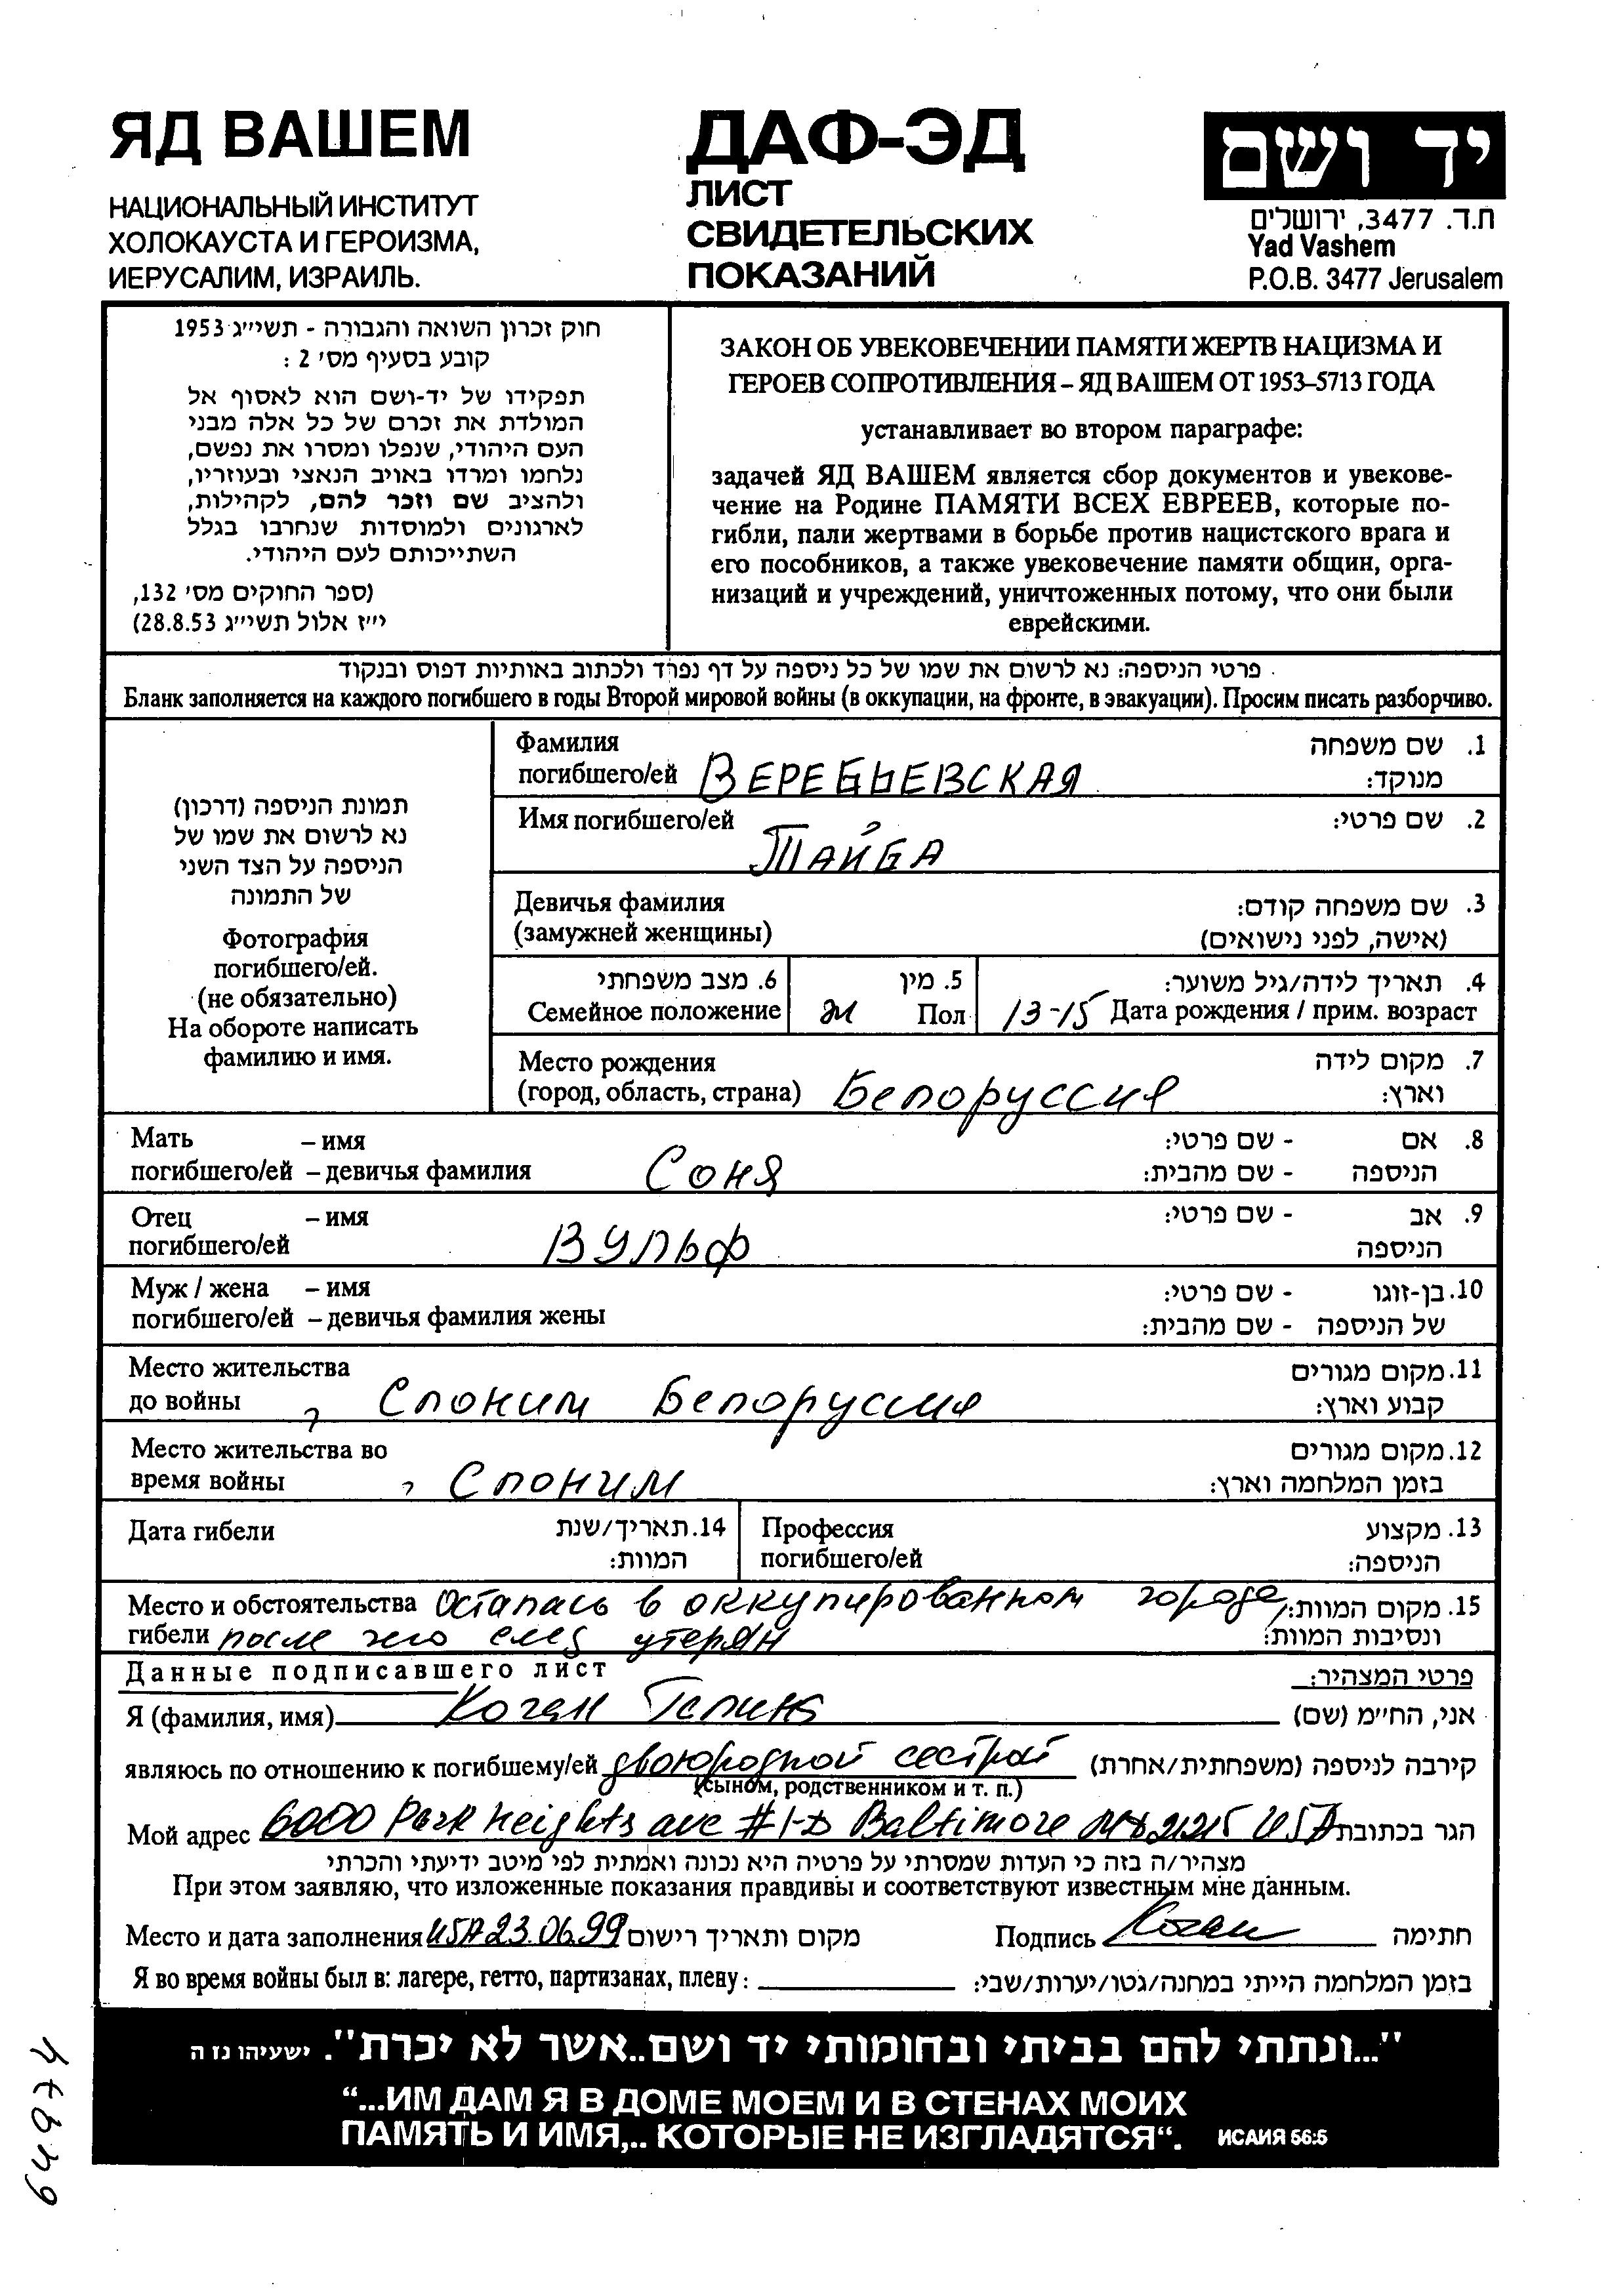 ЯД ВАШЕМ
НАЦИОНАЛЬНЫЙ ИНСТИТУТ
ХОЛОКАУСТА И ГЕРОИЗМА,
ИЕРУСАЛИМ, ИЗРАИЛЬ.
ДАФ-ЭД
ЛИСТ
СВИДЕТЕЛЬСКИХ
ПОКАЗАНИЙ
יד ושם
ת.ד. 3477, ירושלים
Yad Vashem
P.O.B. 3477 Jerusalem
חוק זכרון השואה והגבורה - תשי״ג 1953
קובע בסעיף מס׳ 2 :
תפקידו של יד-ושם הוא לאסוף אל
המולדת את זכרם של כל אלה מבני
העם היהודי, שנפלו ומסרו את נפשם,
נלחמו ומרדו באויב הנאצי ובעוזריו,
ולהציב שם וזכר להם, לקהילות,
לארגונים ולמוסדות שנחרבו בגלל
השתייכותם לעם היהודי.
(ספר החוקים מס׳ 132,
י״ז אלול תשי״ג 28.8.53)
ЗАКОН ОБ УВЕКОВЕЧЕНИИ ПАМЯТИ ЖЕРТВ НАЦИЗМА И
ГЕРОЕВ СОПРОТИВЛЕНИЯ – ЯД ВАШЕМ ОТ 1953–5713 ГОДА
устанавливает во втором параграфе:
задачей ЯД ВАШЕМ является сбор документов и увекове-
чение на Родине ПАМЯТИ ВСЕХ ЕВРЕЕВ, которые по-
гибли, пали жертвами в борьбе против нацистского врага и
его пособников, а также увековечение памяти общин, орга-
низаций и учреждений, уничтоженных потому, что они были
еврейскими.
פרטי הניספה: נא לרשום את שמו של כל ניספה על דף נפרד ולכתוב באותיות דפוס ובנקוד
Бланк заполняется на каждого погибшего в годы Второй мировой войны (в оккупации, на фронте, в эвакуации). Просим писать разборчиво.
תמונת הניספה (דרכון)
נא לרשום את שמו של
הניספה על הצד השני
של התמונה
Фотография
погибшего/ей.
(не обязательно)
На обороте написать
фамилию и имя.
Фамилия 1. שם משפחה
погибшего/ей ВЕРЕБЬЕВСКАЯ מנוקד:
Имя погибшего/ей 2. שם פרטי:
ТАЙБА
Девичья фамилия 3. שם משפחה קודם:
(замужней женщины) (אישה, לפני נישואים)
6. מצב משפחתי 5. מין 4. תאריך לידה/גיל משוער:
Семейное положение Ж Пол 13-15 Дата рождения / прим. возраст
Место рождения 7. מקום לידה
(город, область, страна) Белоруссия וארץ:
Мать – имя 8. אם - שם פרטי:
погибшего/ей – девичья фамилия Соня הניספה - שם מהבית:
Отец – имя 9. אב - שם פרטי:
погибшего/ей Вульф הניספה
Муж / жена – имя 10. בן-זוגו - שם פרטי:
погибшего/ей – девичья фамилия жены של הניספה - שם מהבית:
Место жительства 11. מקום מגורים
до войны ? Слоним Белоруссия קבוע וארץ:
Место жительства во 12. מקום מגורים
время войны ? Слоним בזמן המלחמה וארץ:
Дата гибели 14. תאריך/שנת Профессия 13. מקצוע
המוות: погибшего/ей הניספה:
Место и обстоятельства Осталась в оккупированном городе, 15. מקום המוות:
гибели после чего след утерян ונסיבות המוות:
Данные подписавшего лист פרטי המצהיר:
Я (фамилия, имя) Коган Галина אני, הח״מ (שם)
являюсь по отношению к погибшему/ей двоюродной сестрой קירבה לניספה (משפחתית/אחרת)
(сыном, родственником и т. п.)
Мой адрес 6000 Park Heights ave #1-D Baltimore MD 21215 USA הגר בכתובת
מצהיר/ה בזה כי העדות שמסרתי על פרטיה היא נכונה ואמתית לפי מיטב ידיעתי והכרתי
При этом заявляю, что изложенные показания правдивы и соответствуют известным мне данным.
Место и дата заполнения USA 23.06.99 מקום ותאריך רישום Подпись Коган חתימה
Я во время войны был в: лагере, гетто, партизанах, плену: בזמן המלחמה הייתי במחנה/גטו/יערות/שבי:
"...ונתתי להם בביתי ובחומותי יד ושם..אשר לא יכרת". ישעיהו נו ה
“...ИМ ДАМ Я В ДОМЕ МОЕМ И В СТЕНАХ МОИХ
ПАМЯТЬ И ИМЯ,.. КОТОРЫЕ НЕ ИЗГЛАДЯТСЯ“. ИСАИЯ 56:5